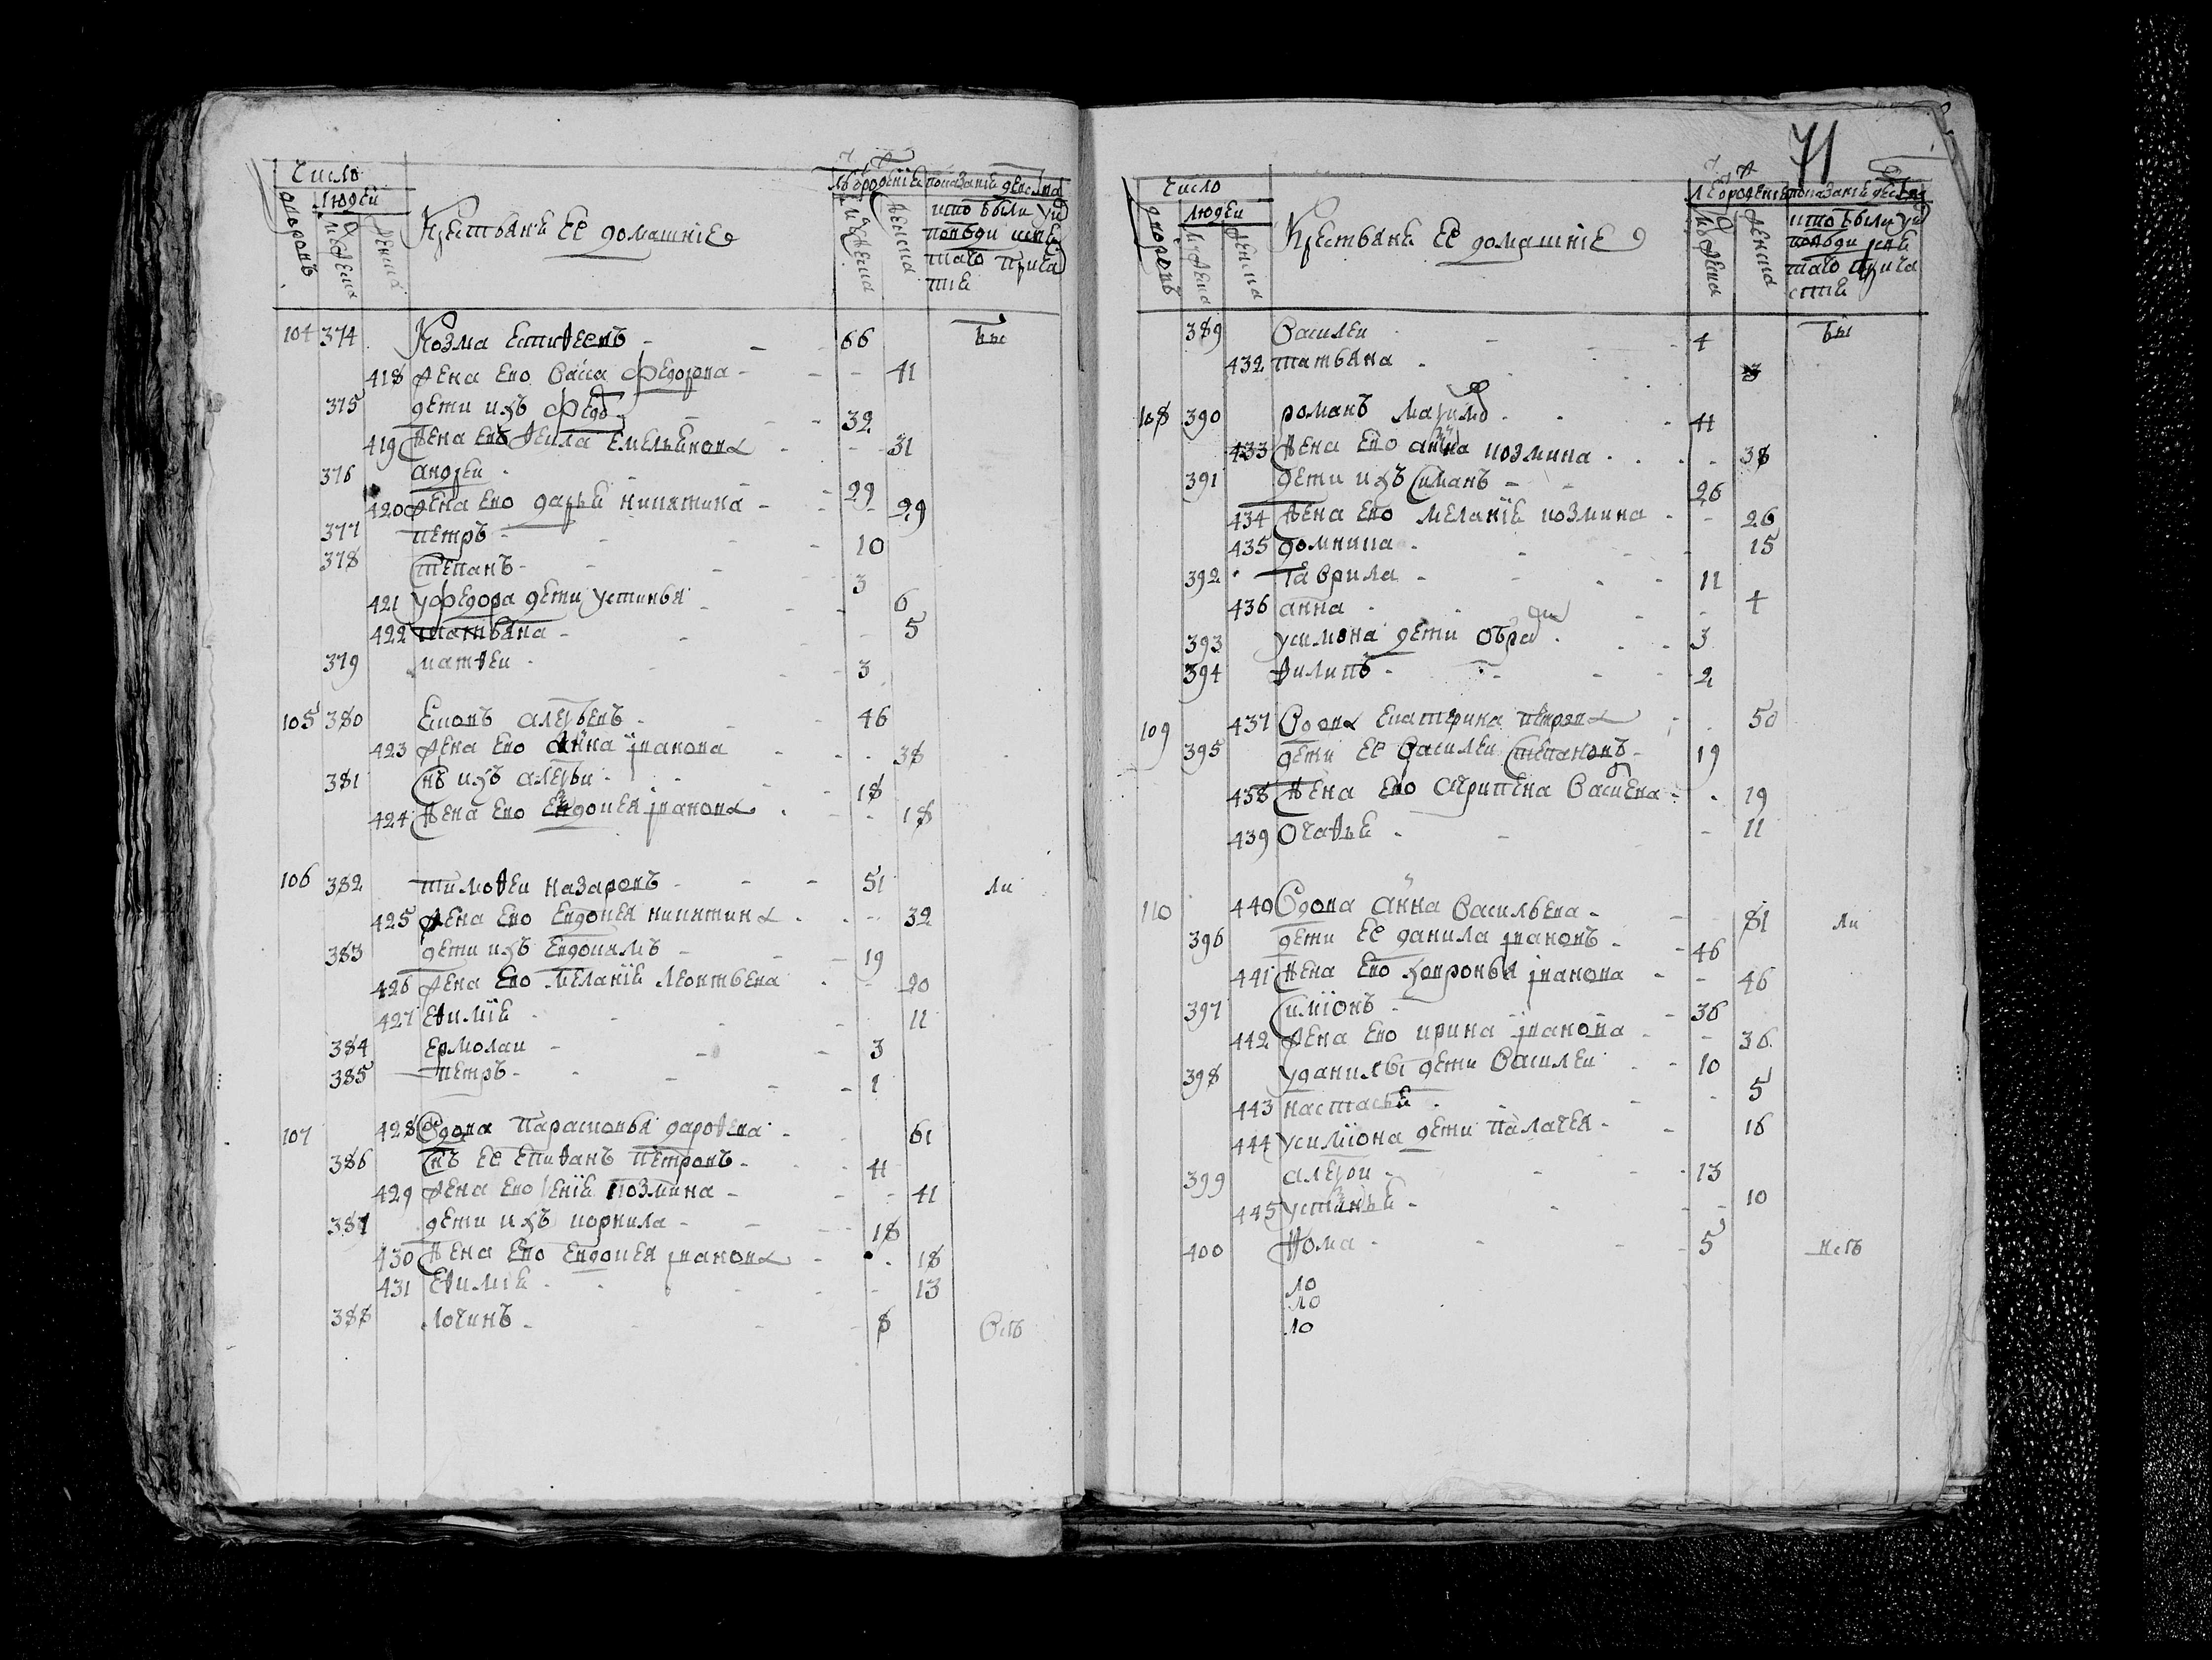 Число
Людей
дворовъ
мужеска
женска
Крестьяне ее домашние
мужеска
женска
кто были у
104 374 Козма Естифеевъ 66 бы
418 жена ево Васа Федорова 41
375 дети ихъ Федо 32
419 жена ево Фекла Емельянова 31
376 андреи 29
420 жена ево дарья никитина 29
377 петръ 10
378 степанъ 3
421 уфедора дети устинья 6
422 татьяна 5
379 матфеи 3
105 380 алексеевъ 46
423 жена ево анна іванова 38
381 снъ ихъ алексеи 18
424 жена ево Евдокея іванова 18
106 382 тимофеи назаровъ 51 ли
425 жена ево Евдокея никитина 32
383 дети ихъ Евдокимъ 19
426 жена ево меланiя леонтьева 20
427 Ефимiя 11
384 ермолаи 3
385 петръ 1
107 428 Вдова Парасковья дорофева 61
386 снъ ее епифанъ петровъ 41
429 жена ево козмина 41
387 дети ихъ корнила 18
430 жена ево Евдокея іванова 18
431 Ефимiя 13
388 логинъ 8 Всѣ
71
Число
людеи
дворовъ
мужеска
женска
Крестьяне ее домашние
мужеска
женска
кто были у
389 Василеи 4 бы
432 татьяна 3
108 390 романъ максимо 41
433 жена ево анна козмина 38
391 дети ихъ Симанъ 26
434 жена ево меланiя козмина 26
435 домника 15
392 Гаврила 11
436 анна 4
393 усимона дети 3
394 филипъ 2
109 437 Вдова екатерина петрова 50
395 дети ее Василеи степановъ 19
438 жена ево агрипена Василева 19
439 огафья 11
110 440 Вдова анна Васильева 81 ли
396 дети ее данила івановъ 46
441 жена ево ховронья іванова 46
397 симiонъ 36
442 жена ево ирина іванова 36
398 уданилы дети Василеи 10
443 настасья 5
444 усимiона дети палагея 16
399 алексеи 13
445 устинья 10
400 Фома 5 всѣ
10
10
10